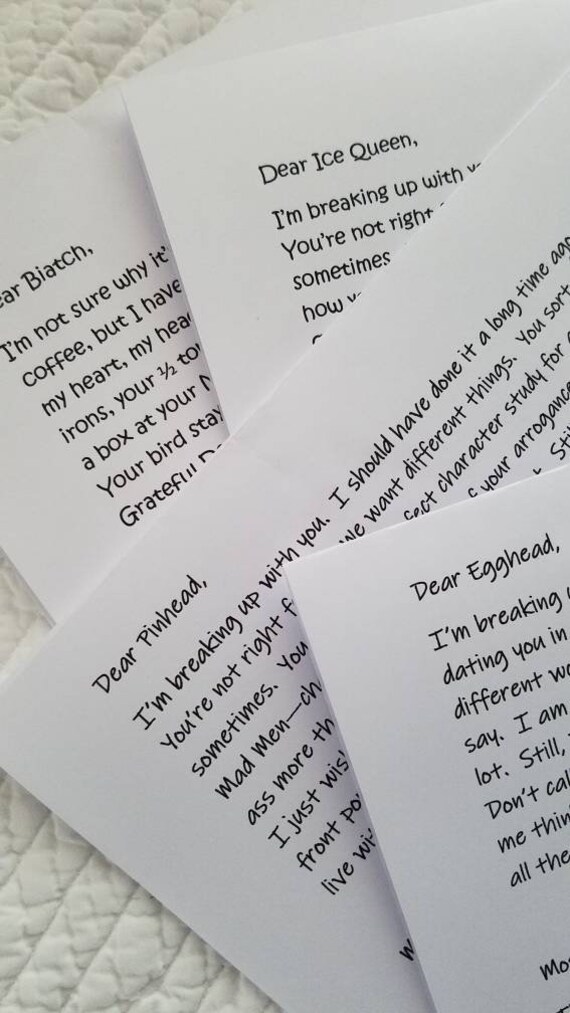 Dear Ice Queen,
I'm breaking up with
You're not right
sometimes
how
Biatch,
I'm not sure why it'
coffee, but I have
my heart, my hea
irons, your ½ to
a box at your
Your bird stay
Grateful
Dear Pinhead,
I'm breaking up with you. I should have done it a long time ago
You're not right f we want different things. You sort
sometimes. You character study for
Mad Men—ch your arrogance
ass more th Sti
I just wis
front po
live wi
Dear Egghead,
I'm breaking
dating you in
different wo
say. I am
lot. Still,
Don't cal
me thin
all the
Mos